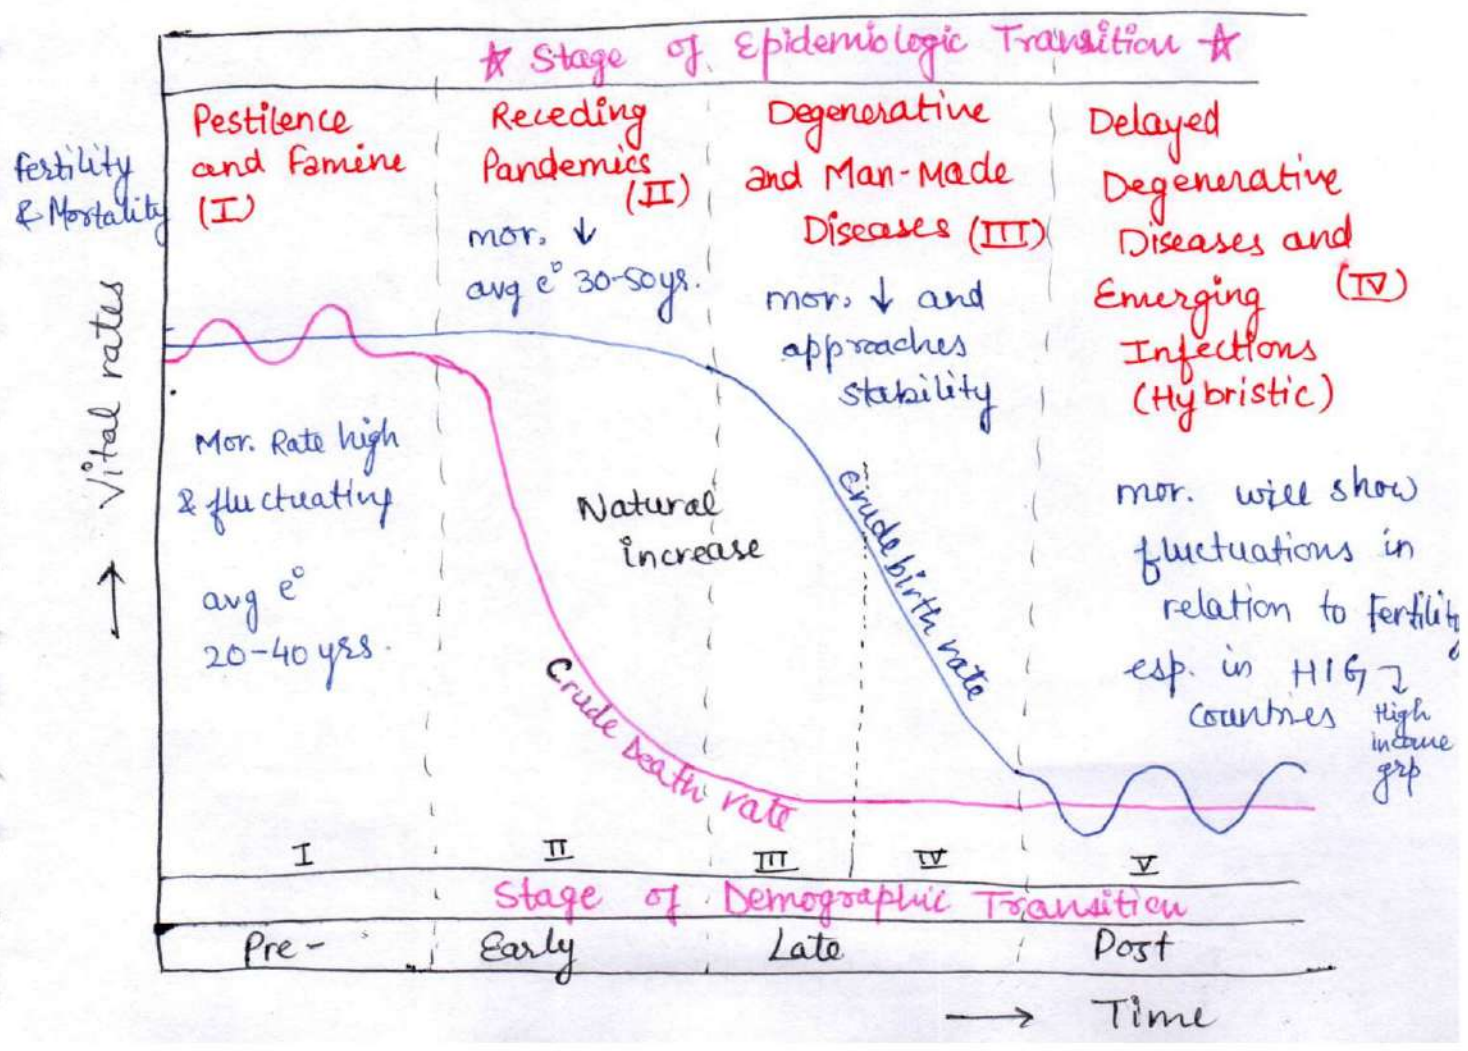 ☆ Stage of Epidemiologic Transition ☆
Fertility
& Mortality
→ Vital rates
Pestilence
and Famine
(I)
Mor. Rate high
& fluctuating
avg e°
20-40 yrs.
Receding
Pandemics
(II)
mor. ↓
avg e° 30-50yrs.
Natural
increase
Crude Death rate
Degenerative
and Man-Made
Diseases (III)
mor. ↓ and
approaches
stability
crude birth rate
Delayed
Degenerative
Diseases and
(IV)
Emerging
Infections
(Hybristic)
mor. will show
fluctuations in
relation to fertility
esp. in HIG
countries
High
income
grp
I II III IV V
Stage of Demographic Transition
Pre- Early Late Post
→ Time